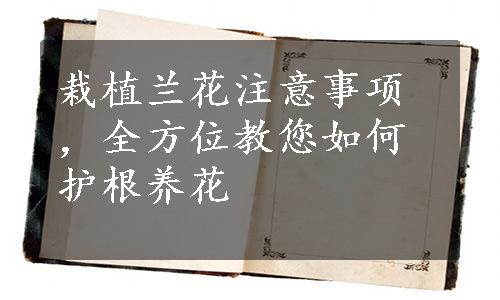 栽植兰花注意事项
，全方位教您如何
护根养花